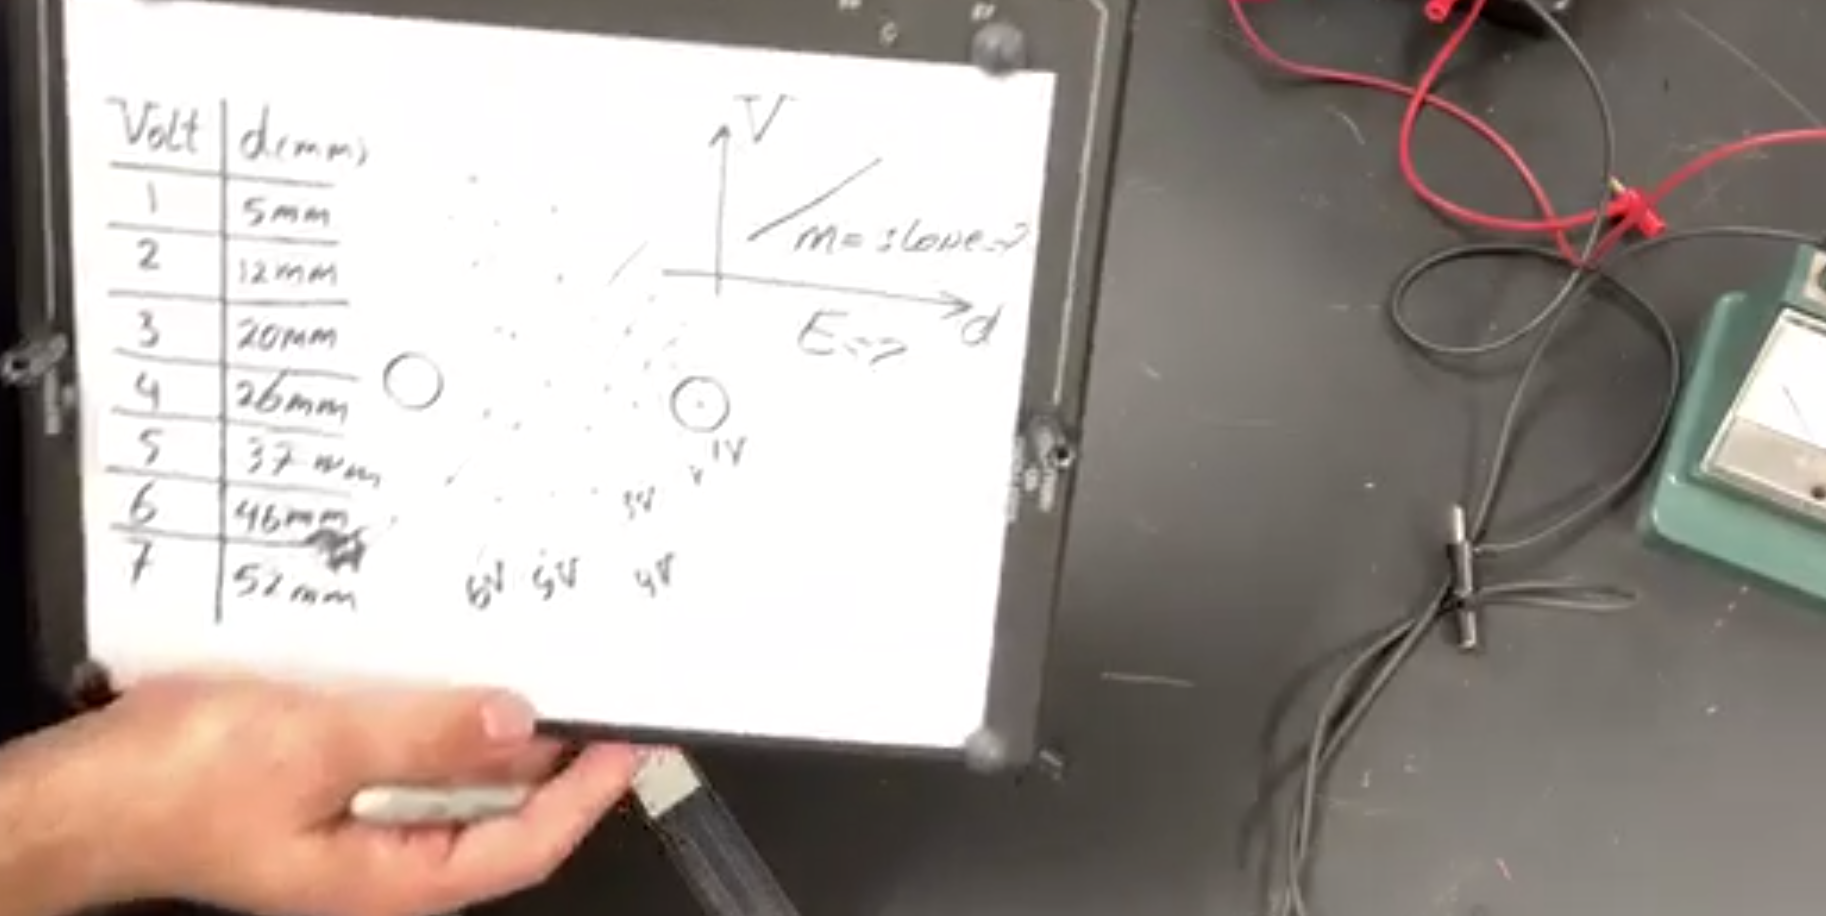 Volt d(mm)
1 5mm
2 12mm
3 20mm
4 26mm
5 37mm
6 46mm
7 52mm
V
m= slope
d
E=>
1V
3V
4V
5V
6V